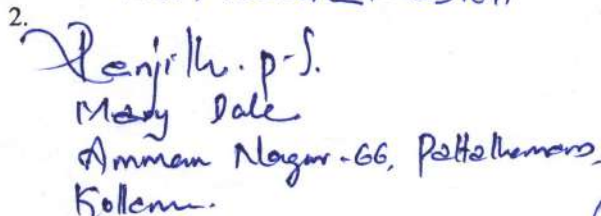 2.
Renjith. P-S.
Mary Dale
Amman Nagar-66, Pattathanam,
Kollam.